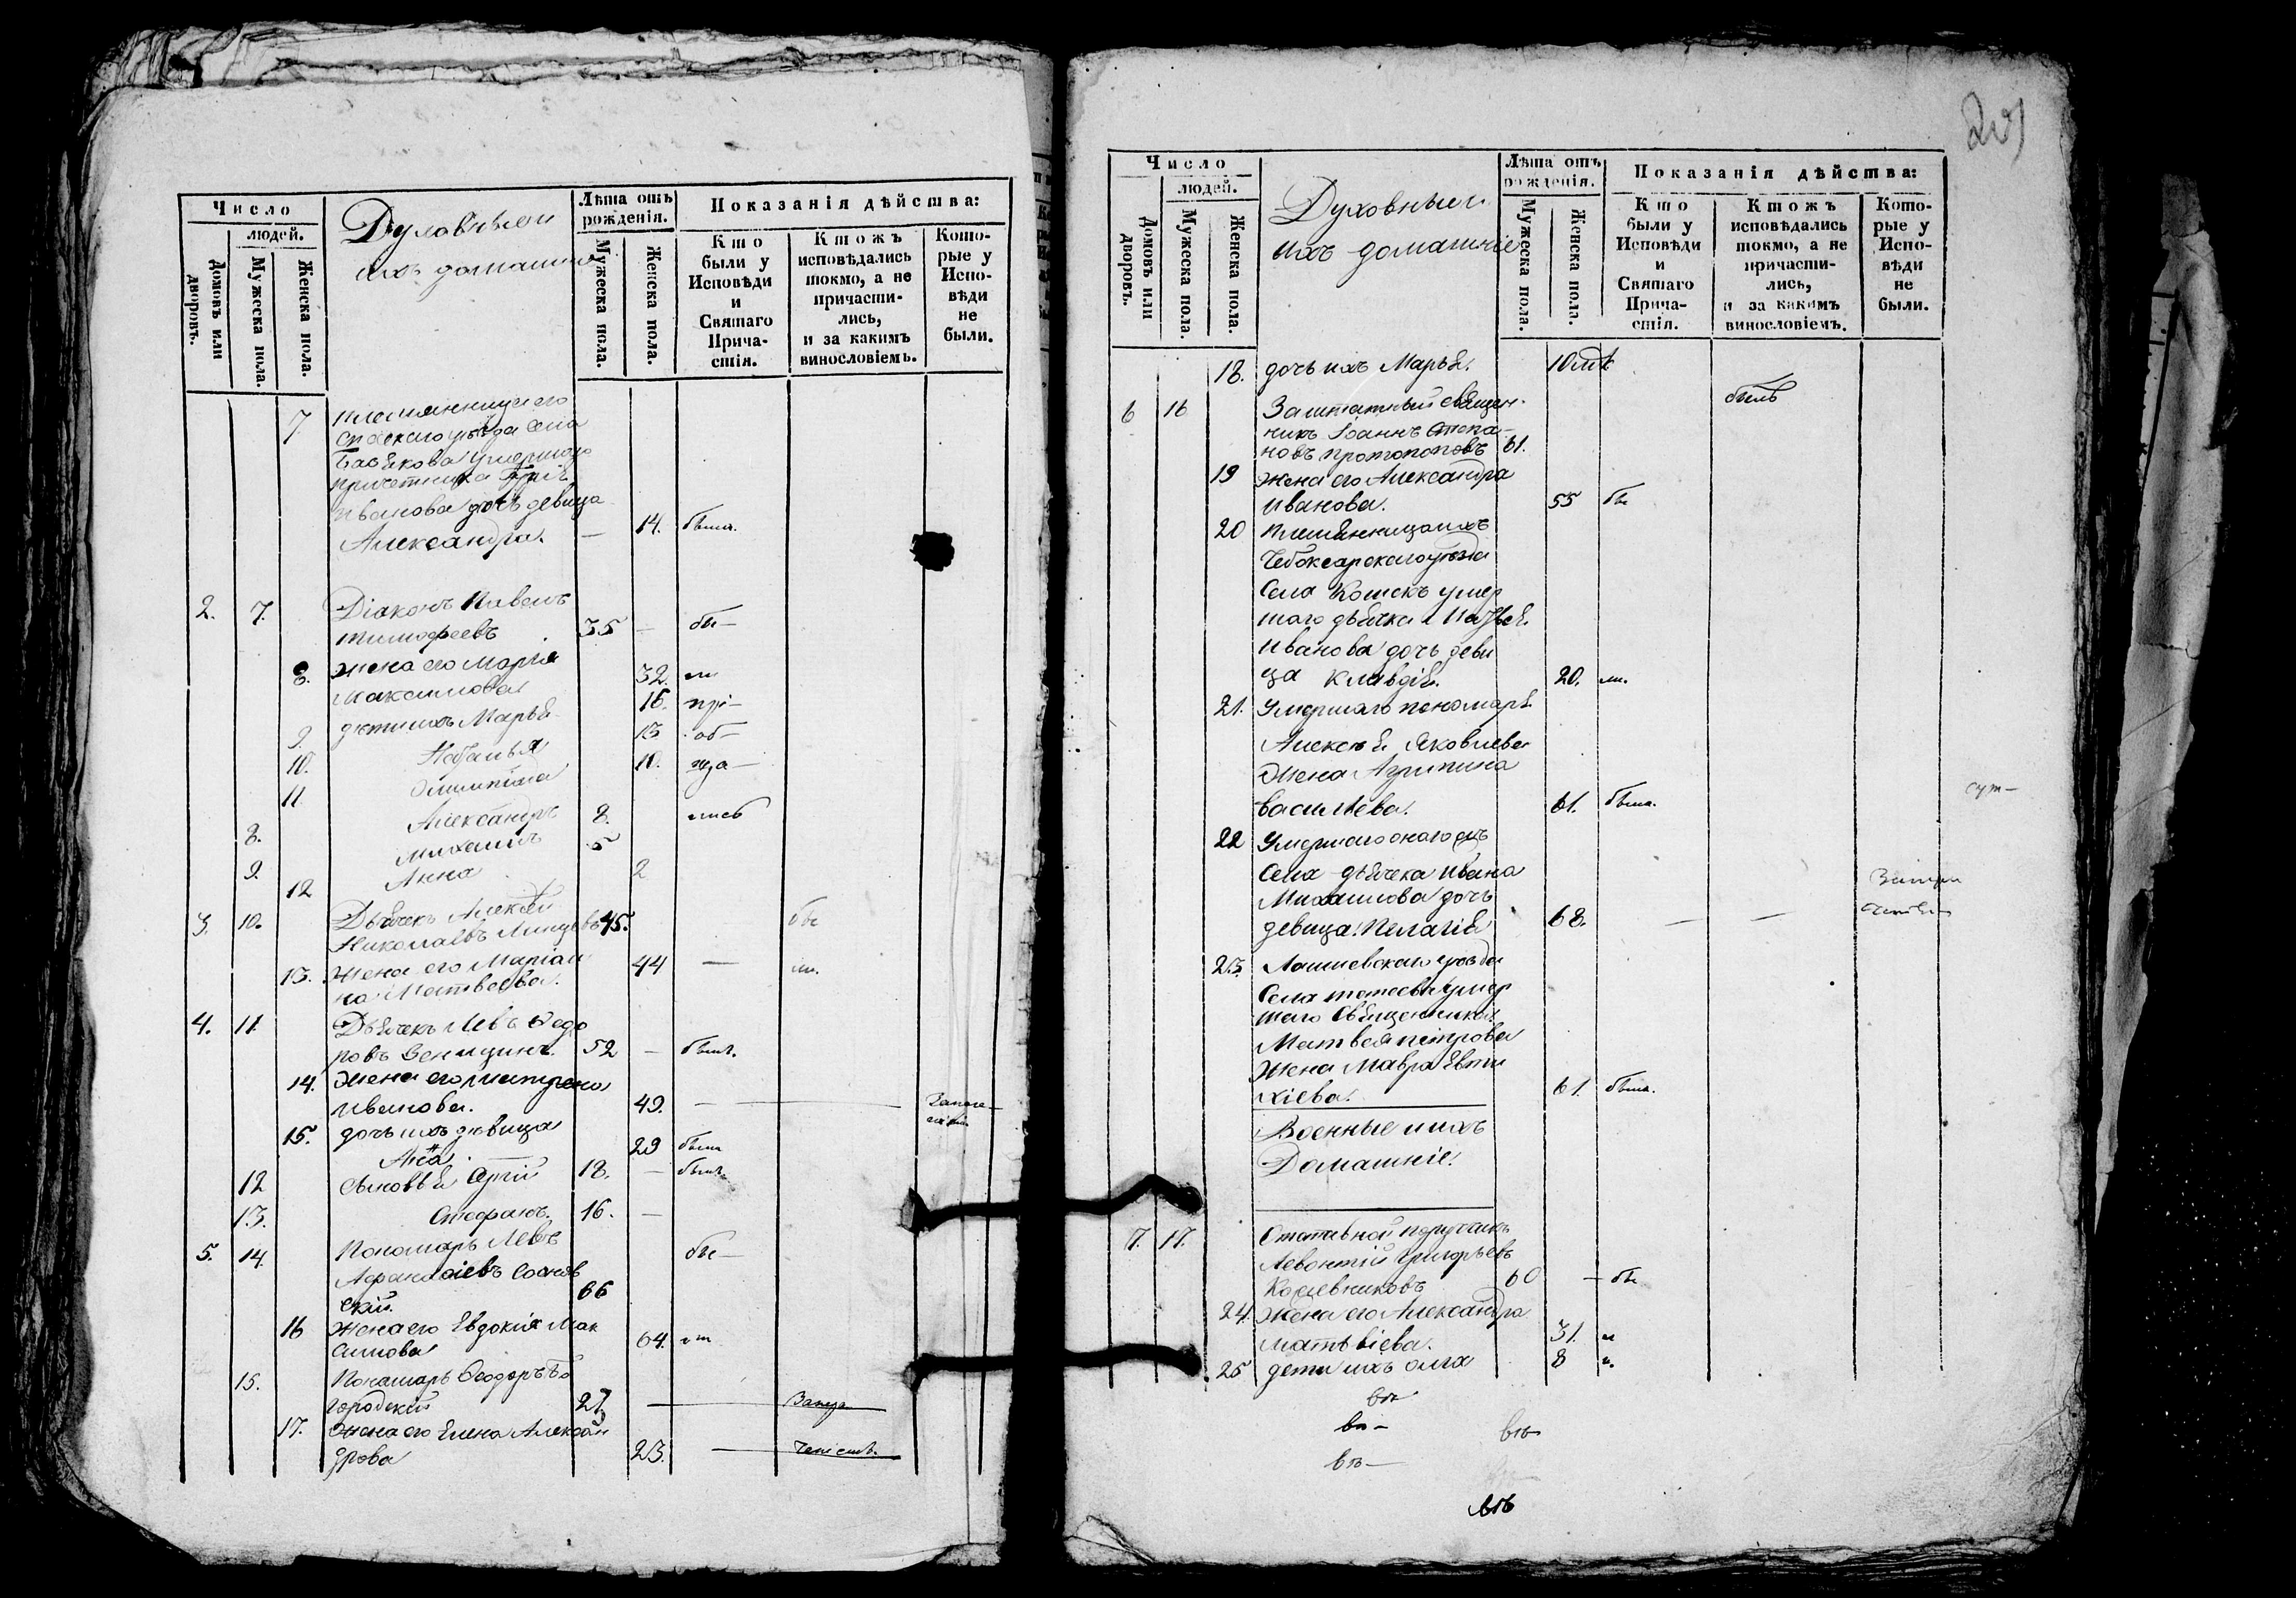 Число
людей.
Домовъ или дворовъ.
Мужеска пола.
Женска пола.
Духовныеи
ихъ домашніе
Лѣта отъ рожденія.
Мужеска пола.
Женска пола.
Показанія дѣйства:
Кто были у Исповѣди и Святаго Прича-стія.
Ктожъ исповѣдались токмо, а не причасти-лись, и за какимъ винословіемъ.
Кото-рые у Испо-вѣди не были.
7. племянница его
Спаскаго уѣзда села
умершаго
причетника
Иванова дочь девица
Александра. — 14. была.
2. 7. Діаконъ Павелъ
Тимофеевъ 35 — бы—
8. жена его Марія
Максимова 32. ли
9. дети ихъ Марья 16. прі—
10. Наталья 13 об—
11 Олимпіада 10. ща—
8. Александръ 8. лись
9. Михаилъ 5
12 Анна 2
3. 10. Дьячекъ Алексѣй
Николаевъ 45. бы
13. Жена его Маріам
на Матвеева. 44 — ли.
4. 11. Дьячекъ Левъ Федо
ровъ 52 — былъ.
14. Жена его Матрена
Иванова. 49. —
15. дочь ихъ дѣвица
Анна. 29 была
12 сыновья Сергій 18. — былъ
13. Стефанъ. 16. —
5. 14. Пономарь Левъ бы—
Афанасіевъ Соснов
скій. 66
16 Жена его Евдокія Мак
симова 64. ли
15. Пономарь Феодоръ Бо
городскій 27 —
17. Жена его Елена Алексан
дрова 23. —
Число
людей.
Домовъ или дворовъ.
Мужеска пола.
Женска пола.
Духовныеи
ихъ домашніе
Лѣта отъ рожденія.
Мужеска пола.
Женска пола.
Показанія дѣйства:
Кто были у Исповѣди и Святаго Прича-стія.
Ктожъ исповѣдались токмо, а не причасти-лись, и за какимъ винословіемъ.
Кото-рые у Испо-вѣди не были.
18. дочь ихъ Марья. 10
6 16 Заштатный священ-
никъ Іоаннъ Степа-
новъ Протопоповъ 61. былъ
19 жена его Александра
Иванова. 55 бы
20 племянница ихъ
Чебоксарскаго уѣзда
Села Кошекъ умер
шаго дьячка
Иванова дочь деви
ца Клавдія. 20. ли.
21. Умершаго пономаря
Алексѣя Яковлева
Жена Агрипина
Васильева. 61. была.
22 Умершаго онаго
Села дьячека Ивана
Михайлова дочь
девица Пелагія 68. — —
23. Лаишевскаго уѣзда
Села умер
шаго Священника
Матвея Петрова
Жена Мавра Евти
хіева. 61. была.
Военные и ихъ
Домашніе.
7. 17. Отставной порутчикъ
Левонтій Григорьевъ
Кожевниковъ 60 — бы
24. Жена его Александра
Матьвіева. 31. и
25 дети ихъ Ольга 8 и.